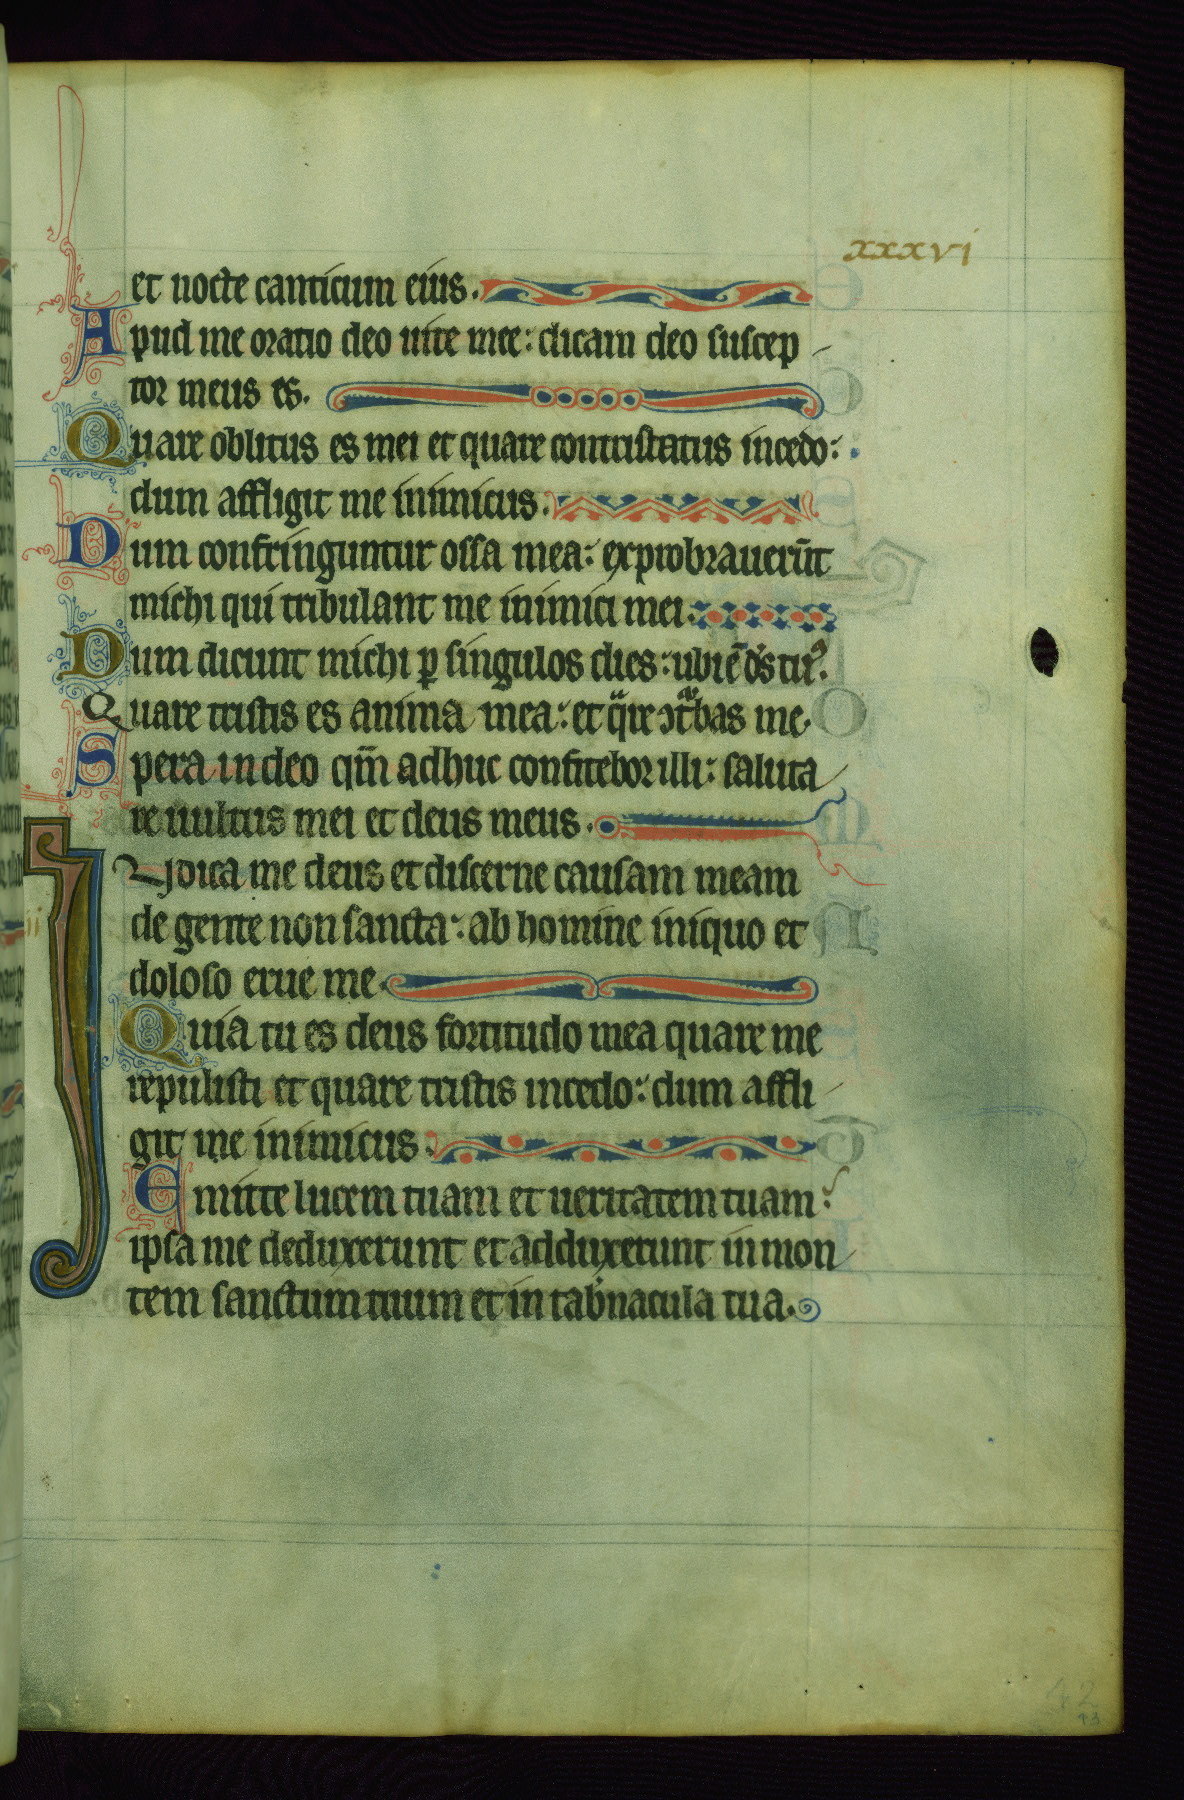 xxxvi
et nocte canticum eius.
Apud me oratio deo uite mee: dicam deo suscep
tor meus es.
Quare oblitus es mei et quare contristatus incedo:
dum affligit me inimicus.
Dum confringuntur ossa mea: exprobrauerūt
michi qui tribulant me inimici mei.
Dum dicunt michi ꝑ singulos dies: ubi ē ds̄ tuꝰ.
Quare tristis es anima mea: et qͣre ↄtᷓbas me.
Spera in deo qm̄ adhuc confitebor illi: saluta
re uultus mei et deus meus.
Iudica me deus et discerne causam meam
de gente non sancta: ab homine iniquo et
doloso erue me.
Quia tu es deus fortitudo mea quare me
repulisti et quare tristis incedo: dum affli
git me inimicus.
Emitte lucem tuam et ueritatem tuam:
ipsa me deduxerunt et adduxerunt in mon
tem sanctum tuum et in tab̓nacula tua.
42
43